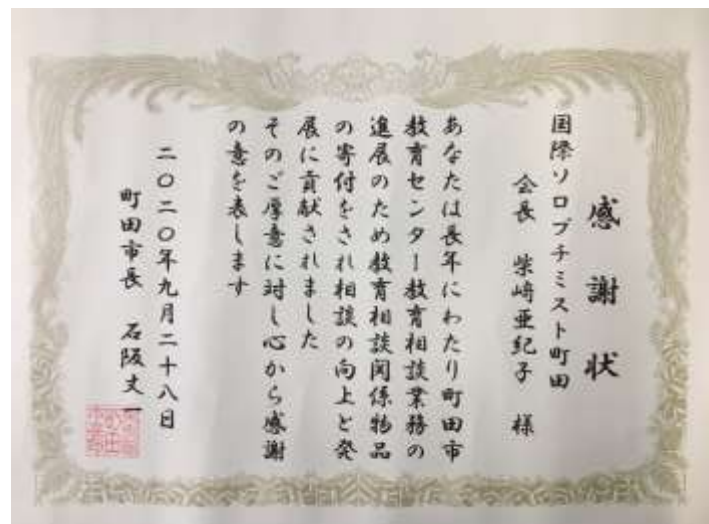 感謝状
国際ソロプチミスト町田
会長 柴崎亜紀子 様
あなたは長年にわたり町田市
教育センター教育相談業務の
進展のため教育相談関係物品
の寄付をされ相談の向上と発
展に貢献されました
そのご厚意に対し心から感謝
の意を表します
二〇二〇年九月二十八日
町田市長 石阪丈一